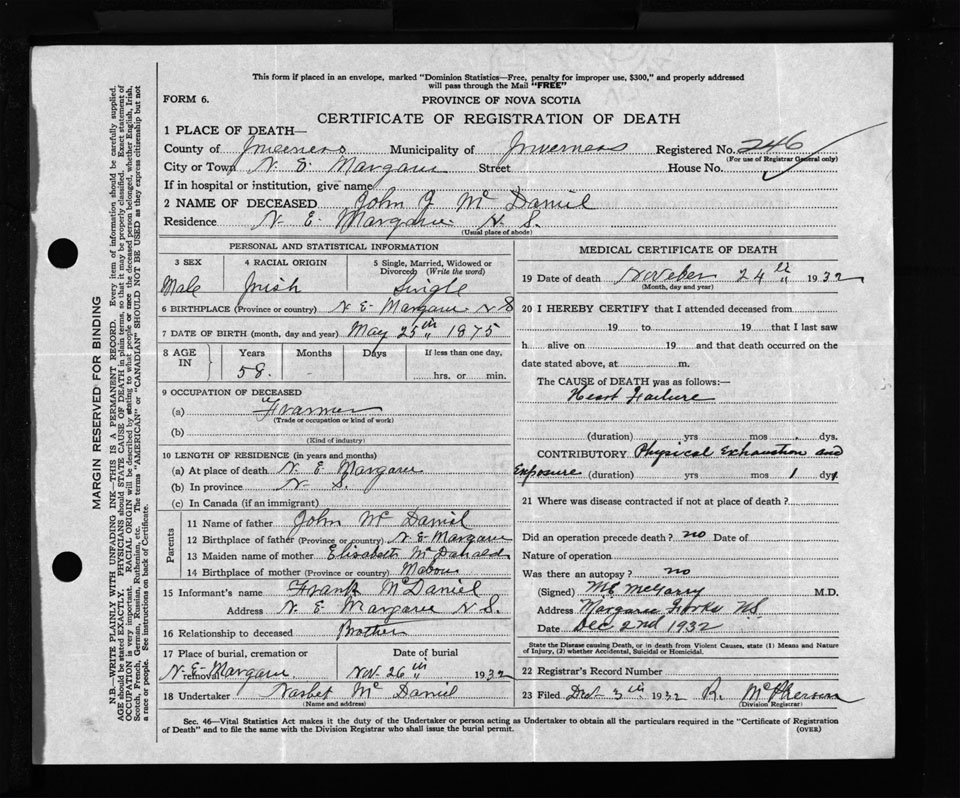 This form if placed in an envelope, marked "Dominion Statistics—Free, penalty for improper use, $300," and properly addressed
will pass through the Mail "FREE"
FORM 6.
PROVINCE OF NOVA SCOTIA
CERTIFICATE OF REGISTRATION OF DEATH
1 PLACE OF DEATH—
County of Inverness Municipality of Inverness Registered No. 246
(For use of Registrar General only)
City or Town N. E. Margaree Street House No.
If in hospital or institution, give name
2 NAME OF DECEASED John J Mc Daniel
Residence N. E. Margaree N. S.
(Usual place of abode)
PERSONAL AND STATISTICAL INFORMATION
3 SEX 4 RACIAL ORIGIN 5 Single, Married, Widowed or Divorced (Write the word)
Male Irish Single
6 BIRTHPLACE (Province or country) N E. Margaree N S
7 DATE OF BIRTH (month, day and year) May 25th 1875
8 AGE IN Years Months Days If less than one day,
58. - hrs. or min.
9 OCCUPATION OF DECEASED
(a) Framer
(Trade or occupation or kind of work)
(b)
(Kind of industry)
10 LENGTH OF RESIDENCE (in years and months)
(a) At place of death N. E. Margaree
(b) In province N. S.
(c) In Canada (if an immigrant)
Parents
11 Name of father John Mc Daniel
12 Birthplace of father (Province or country) N-E-Margaree
13 Maiden name of mother Elisabeth McDonald
14 Birthplace of mother (Province or country) Mabou
15 Informant's name Frank McDaniel
Address N. E. Margaree N. S.
16 Relationship to deceased Brother
17 Place of burial, cremation or removal Date of burial
N-E-Margaree Nov. 26th 1932
18 Undertaker Mc Daniel
(Name and address)
MEDICAL CERTIFICATE OF DEATH
19 Date of death November 24th 1932
(Month, day and year)
20 I HEREBY CERTIFY that I attended deceased from
19 to 19 that I last saw
h alive on 19 and that death occurred on the
date stated above, at m.
The CAUSE of DEATH was as follows:
Heart Failure
(duration) yrs mos dys.
CONTRIBUTORY Physical Exhaustion and
Exposure (duration) yrs mos 1 dys.
21 Where was disease contracted if not at place of death?
Did an operation precede death? no Date of
Nature of operation
Was there an autopsy? no
(Signed) McGarry M.D.
Address Margaree Forks NS
Date Dec 2nd 1932
State the Disease causing Death, or in death from Violent Causes, state (1) Means and Nature
of Injury, (2) whether Accidental, Suicidal or Homicidal.
22 Registrar's Record Number
23 Filed Dec. 3rd 1932 R. McPherson
(Division Registrar)
Sec. 46—Vital Statistics Act makes it the duty of the Undertaker or person acting as Undertaker to obtain all the particulars required in the "Certificate of Registration
of Death" and to file the same with the Division Registrar who shall issue the burial permit. (OVER)
MARGIN RESERVED FOR BINDING
N.B.—WRITE PLAINLY WITH UNFADING INK—THIS IS A PERMANENT RECORD. Every item of information should be carefully supplied.
AGE should be stated EXACTLY. PHYSICIANS should STATE CAUSE OF DEATH in plain terms, so that it may be properly classified. Exact statement of
OCCUPATION is very important. RACIAL ORIGIN will be described by stating to what people or race the deceased person belonged, whether English, Irish,
Scotch, French, German, Russian, Ruthenian, etc. The terms "AMERICAN" or "CANADIAN" SHOULD NOT BE USED as they express citizenship but not
a race or people. See instructions on back of Certificate.